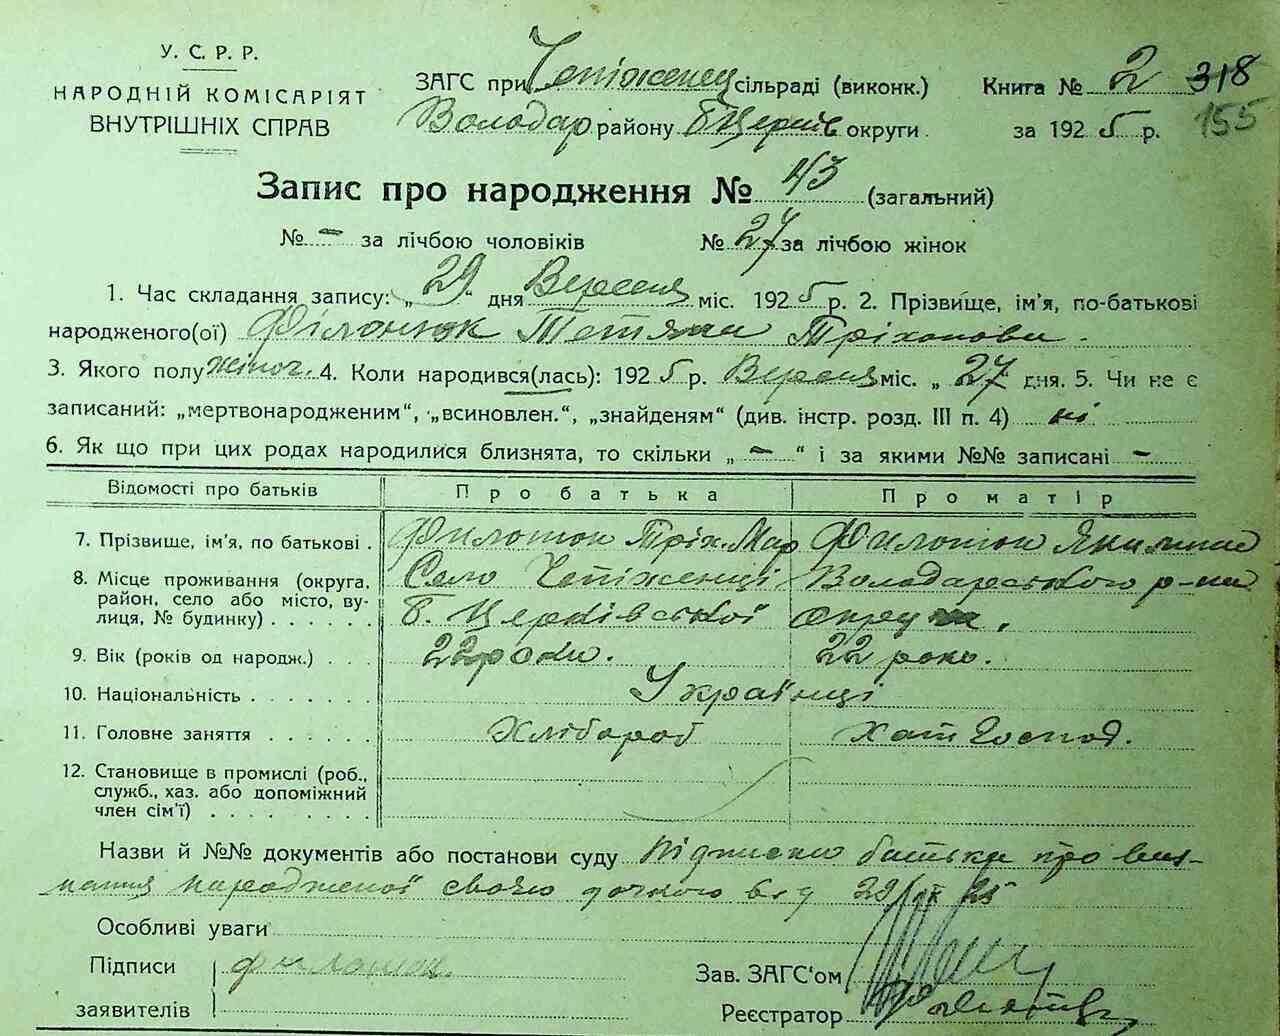 У. С. Р. Р.
НАРОДНІЙ КОМІСАРІЯТ
ВНУТРІШНІХ СПРАВ
ЗАГС при Чепіженец сільраді (виконк.)
Володар району Б Церків округи.
Книга № 2 318
за 1925 р. 155
Запис про народження № 43 (загальний)
№ – за лічбою чоловіків № 27 за лічбою жінок
1. Час складання запису: „29“ дня Вересня міс. 1925 р. 2. Прізвище, ім'я, по-батькові
народженого(ої) Філонюк Тетяна
3. Якого полу жіноч. 4. Коли народився(лась): 1925 р. Вересня міс. „27“ дня. 5. Чи не є
записаний: „мертвонародженим“, „всиновлен.“, „знайденям“ (див. інстр. розд. III п. 4) ні
6. Як що при цих родах народилися близнята, то скільки „–“ і за якими №№ записані –
Відомості про батьків Про батька Про матір
7. Прізвище, ім'я, по батькові . Тріх. Мар
8. Місце проживання (округа, Село Чепіженці Володарського р-ну
район, село або місто, ву-
лиця, № будинку) . . . . . . Б. Церківської округи.
9. Вік (років од народж.) . . . 22 роки. 22 роки.
10. Національність . . . . . . . Українці
11. Головне заняття . . . . . . Хлібороб Хат господ.
12. Становище в промислі (роб.,
служб., хаз. або допоміжний
член сім'ї) . . . . . . . . .
Назви й №№ документів або постанови суду підписки батька про виз-
нання народженої своєю дочкою від 29/IX 25
Особливі уваги
Підписи
заявителів
Зав. ЗАГС'ом
Реєстратор